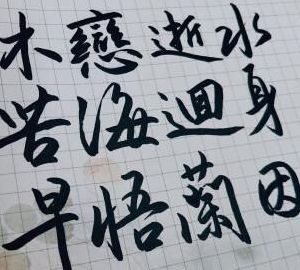 木戀逝水
苦海迴身
早悟蘭因